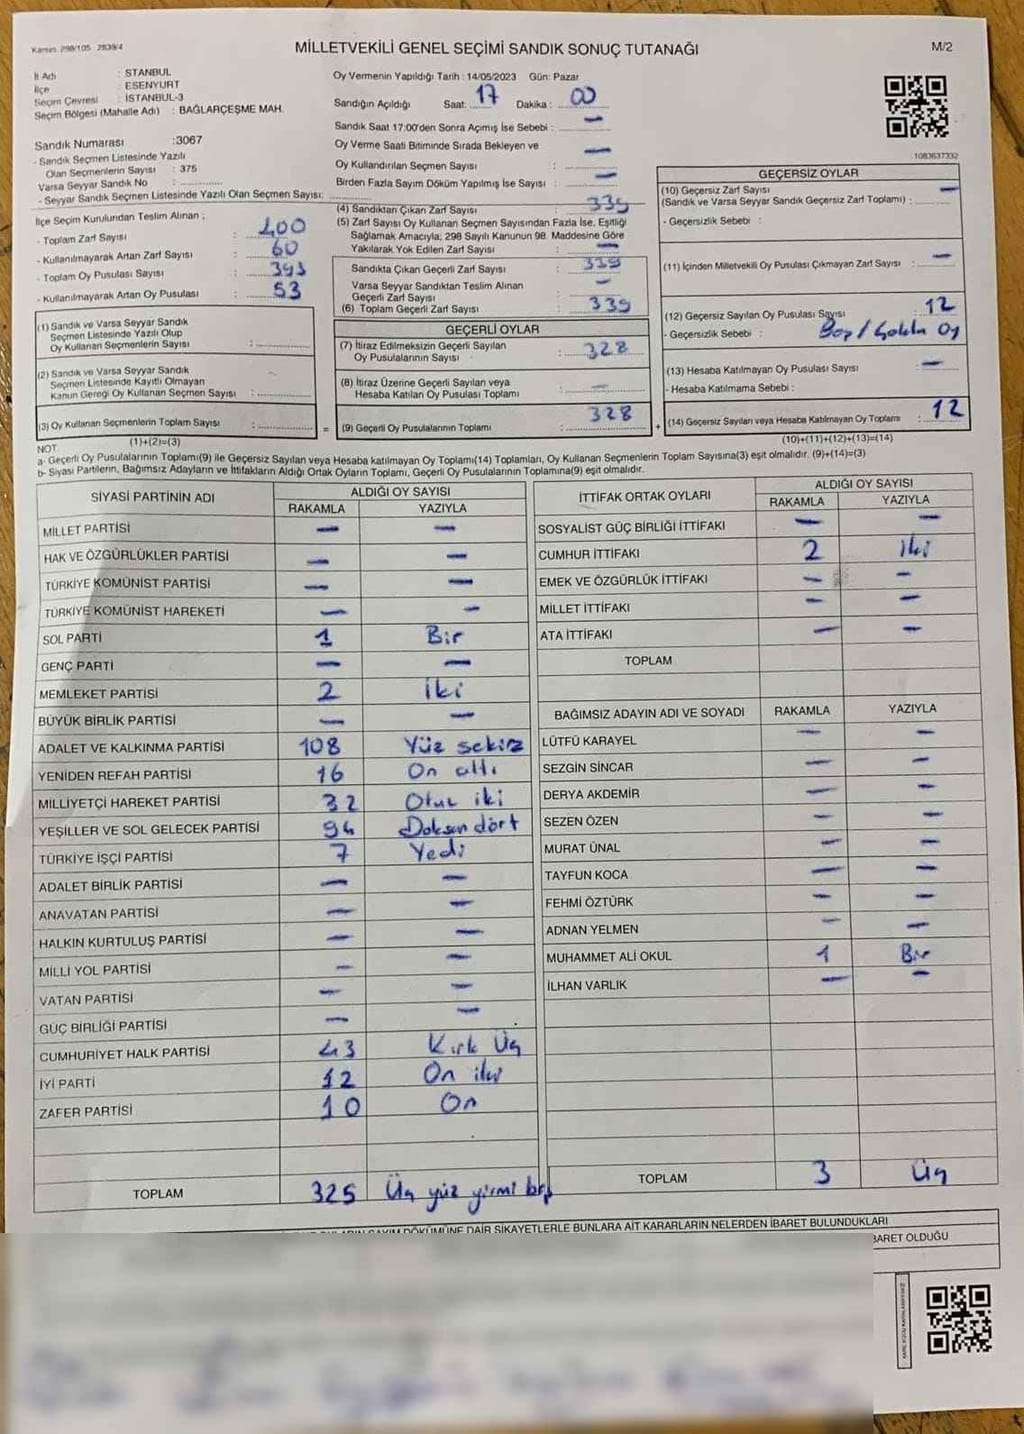 Kanun: 298/105 2839/4
MİLLETVEKİLİ GENEL SEÇİMİ SANDIK SONUÇ TUTANAĞI
M/2
İl Adı : İSTANBUL
İlçe : ESENYURT
Seçim Çevresi : İSTANBUL-3
Seçim Bölgesi (Mahalle Adı) : BAĞLARÇEŞME MAH.
Sandık Numarası :3067
- Sandık Seçmen Listesinde Yazılı
Olan Seçmenlerin Sayısı : 375
Varsa Seyyar Sandık No :
- Seyyar Sandık Seçmen Listesinde Yazılı Olan Seçmen Sayısı:
İlçe Seçim Kurulundan Teslim Alınan ;
- Toplam Zarf Sayısı : 400
- Kullanılmayarak Artan Zarf Sayısı : 60
- Toplam Oy Pusulası Sayısı : 393
- Kullanılmayarak Artan Oy Pusulası : 53
(1) Sandık ve Varsa Seyyar Sandık
Seçmen Listesinde Yazılı Olup
Oy Kullanan Seçmenlerin Sayısı :
(2) Sandık ve Varsa Seyyar Sandık
Seçmen Listesinde Kayıtlı Olmayan
Kanun Gereği Oy Kullanan Seçmen Sayısı :
(3) Oy Kullanan Seçmenlerin Toplam Sayısı : =
(1)+(2)=(3)
Oy Vermenin Yapıldığı Tarih : 14/05/2023 Gün: Pazar
Sandığın Açıldığı Saat: 17 Dakika : 00
Sandık Saat 17:00'den Sonra Açımış İse Sebebi : —
Oy Verme Saati Bitiminde Sırada Bekleyen ve —
Oy Kullandırılan Seçmen Sayısı :
Birden Fazla Sayım Döküm Yapılmış İse Sayısı : —
(4) Sandıktan Çıkan Zarf Sayısı : 339
(5) Zarf Sayısı Oy Kullanan Seçmen Sayısından Fazla İse, Eşitliği
Sağlamak Amacıyla; 298 Sayılı Kanunun 98. Maddesine Göre
Yakılarak Yok Edilen Zarf Sayısı : —
Sandıkta Çıkan Geçerli Zarf Sayısı : 339
Varsa Seyyar Sandıktan Teslim Alınan
Geçerli Zarf Sayısı : —
(6) Toplam Geçerli Zarf Sayısı : 339
GEÇERLİ OYLAR
(7) İtiraz Edilmeksizin Geçerli Sayılan
Oy Pusulalarının Sayısı : 328
(8) İtiraz Üzerine Geçerli Sayılan veya
Hesaba Katılan Oy Pusulası Toplamı : —
(9) Geçerli Oy Pusulalarının Toplamı : 328 +
1083637332
GEÇERSİZ OYLAR
(10) Geçersiz Zarf Sayısı —
(Sandık ve Varsa Seyyar Sandık Geçersiz Zarf Toplamı) :
- Geçersizlik Sebebi :
(11) İçinden Milletvekili Oy Pusulası Çıkmayan Zarf Sayısı : —
(12) Geçersiz Sayılan Oy Pusulası Sayısı : 12
- Geçersizlik Sebebi : Boş/
(13) Hesaba Katılmayan Oy Pusulası Sayısı : —
- Hesaba Katılmama Sebebi :
(14) Geçersiz Sayılan veya Hesaba Katılmayan Oy Toplamı : 12
(10)+(11)+(12)+(13)=(14)
NOT
a- Geçerli Oy Pusulalarının Toplamı(9) ile Geçersiz Sayılan veya Hesaba katılmayan Oy Toplamı(14) Toplamları, Oy Kullanan Seçmenlerin Toplam Sayısına(3) eşit olmalıdır. (9)+(14)=(3)
b- Siyasi Partilerin, Bağımsız Adayların ve İttifakların Aldığı Ortak Oyların Toplamı, Geçerli Oy Pusulalarının Toplamına(9) eşit olmalıdır.
SİYASİ PARTİNİN ADI ALDIĞI OY SAYISI
RAKAMLA YAZIYLA
MİLLET PARTİSİ — —
HAK VE ÖZGÜRLÜKLER PARTİSİ — —
TÜRKİYE KOMÜNİST PARTİSİ — —
TÜRKİYE KOMÜNİST HAREKETİ — —
SOL PARTİ 1 Bir
GENÇ PARTİ — —
MEMLEKET PARTİSİ 2 İki
BÜYÜK BİRLİK PARTİSİ — —
ADALET VE KALKINMA PARTİSİ 108 Yüz sekiz
YENİDEN REFAH PARTİSİ 16 On altı
MİLLİYETÇİ HAREKET PARTİSİ 32 Otuz iki
YEŞİLLER VE SOL GELECEK PARTİSİ 94 Doksan dört
TÜRKİYE İŞÇİ PARTİSİ 7 Yedi
ADALET BİRLİK PARTİSİ — —
ANAVATAN PARTİSİ — —
HALKIN KURTULUŞ PARTİSİ — —
MİLLİ YOL PARTİSİ — —
VATAN PARTİSİ — —
GÜÇ BİRLİĞİ PARTİSİ — —
CUMHURİYET HALK PARTİSİ 43 Kırk Üç
İYİ PARTİ 12 On iki
ZAFER PARTİSİ 10 On
TOPLAM 325 Üç yüz yirmi beş
İTTİFAK ORTAK OYLARI ALDIĞI OY SAYISI
RAKAMLA YAZIYLA
SOSYALİST GÜÇ BİRLİĞİ İTTİFAKI — —
CUMHUR İTTİFAKI 2 İki
EMEK VE ÖZGÜRLÜK İTTİFAKI — —
MİLLET İTTİFAKI — —
ATA İTTİFAKI — —
TOPLAM
BAĞIMSIZ ADAYIN ADI VE SOYADI RAKAMLA YAZIYLA
LÜTFÜ KARAYEL — —
SEZGİN SİNCAR — —
DERYA AKDEMİR — —
SEZEN ÖZEN — —
MURAT ÜNAL — —
TAYFUN KOCA — —
FEHMİ ÖZTÜRK — —
ADNAN YELMEN — —
MUHAMMET ALİ OKUL 1 Bir
İLHAN VARLIK — —
TOPLAM 3 Üç
SAYIM DÖKÜMÜNE DAİR ŞİKAYETLERLE BUNLARA AİT KARARLARIN NELERDEN İBARET BULUNDUKLARI
BARET OLDUĞU